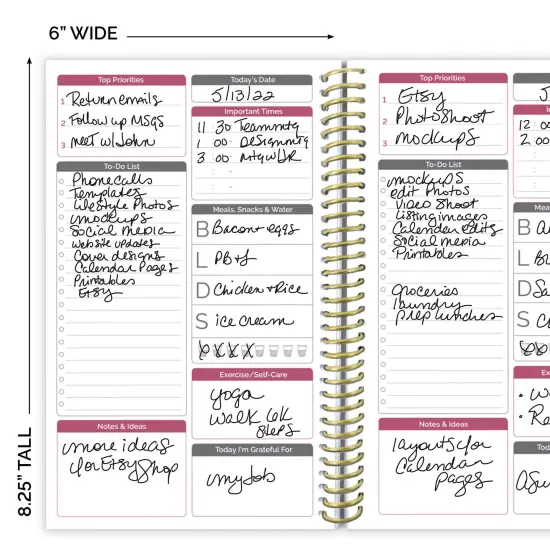 6” WIDE
8.25” TALL
Top Priorities
1 Return emails
2 Follow up MSGS
3 meet w/ John
To-Do List
Phone calls
Templates
Lifestyle Photos
mockups
social media
website updates
Cover designs
Calendar Pages
Printables
Etsy
Notes & Ideas
more ideas
for Etsy Shop
Today's Date
5/13/22
Important Times
11 30 Team mtg
1 00 Design mtg
3 00 mtg w/ JR
Meals, Snacks & Water
B Bacon + eggs
L PB+J
D Chicken + Rice
S ice cream
Exercise/Self-Care
yoga
walk 10K
steps
Today I'm Grateful For
my Job
Top Priorities
1 Etsy
2 Photoshoot
3 mockups
To-Do List
mockups
edit Photos
Video Shoot
Listing images
Calendar edits
Social media
Printables
groceries
laundry
prep lunches
Notes & Ideas
layouts for
Calendar
Pages
12
2 00
Mea
B
L
D Sa
S
Ex
Tod